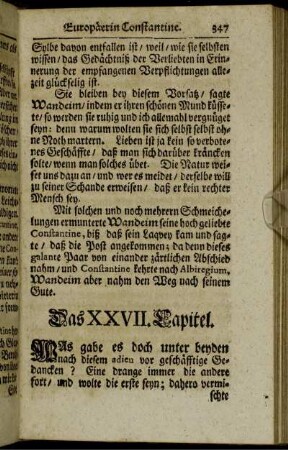 Europäerin Constantine. 347
Sylbe davon entfallen ist/ weil/ wie sie selbsten
wissen/ das Gedächtniß der Verliebten in Erin-
nerung der empfangenen Verpflichtungen alle-
zeit glückselig ist.
Sie bleiben bey diesem Vorsatz/ sagte
Wandeim/ indem er ihren schönen Mund küsse-
te/ so werden sie ruhig und ich allemahl vergnüget
seyn: denn warum wolten sie sich selbst selbst oh-
ne Noth martern. Lieben ist ja kein so verbote-
nes Geschäffte/ daß man sich darüber kräncken
solte/ wenn man solches übet. Die Natur wei-
set uns dazu an/ und wer es meidet/ derselbe will
zu seiner Schande erweisen/ daß er kein rechter
Mensch sey.
Mit solchen und noch mehrern Schmeiche-
lungen ermunterte Wandeim seine hoch geliebte
Constantine, biß daß sein Laqvey kam und sag-
te/ daß die Post angekommen; da denn dieses
galante Paar von einander zärtlichen Abschied
nahm/ und Constantine kehrte nach Albiregium,
Wandeim aber nahm den Weg nach seinem
Gute.
Das XXVII. Capitel.
WAs gabe es doch unter beyden
nach diesem adieu vor geschäfftige Ge-
dancken? Eine drange immer die andere
fort/ und wolte die erste seyn; dahero vermi-
schte